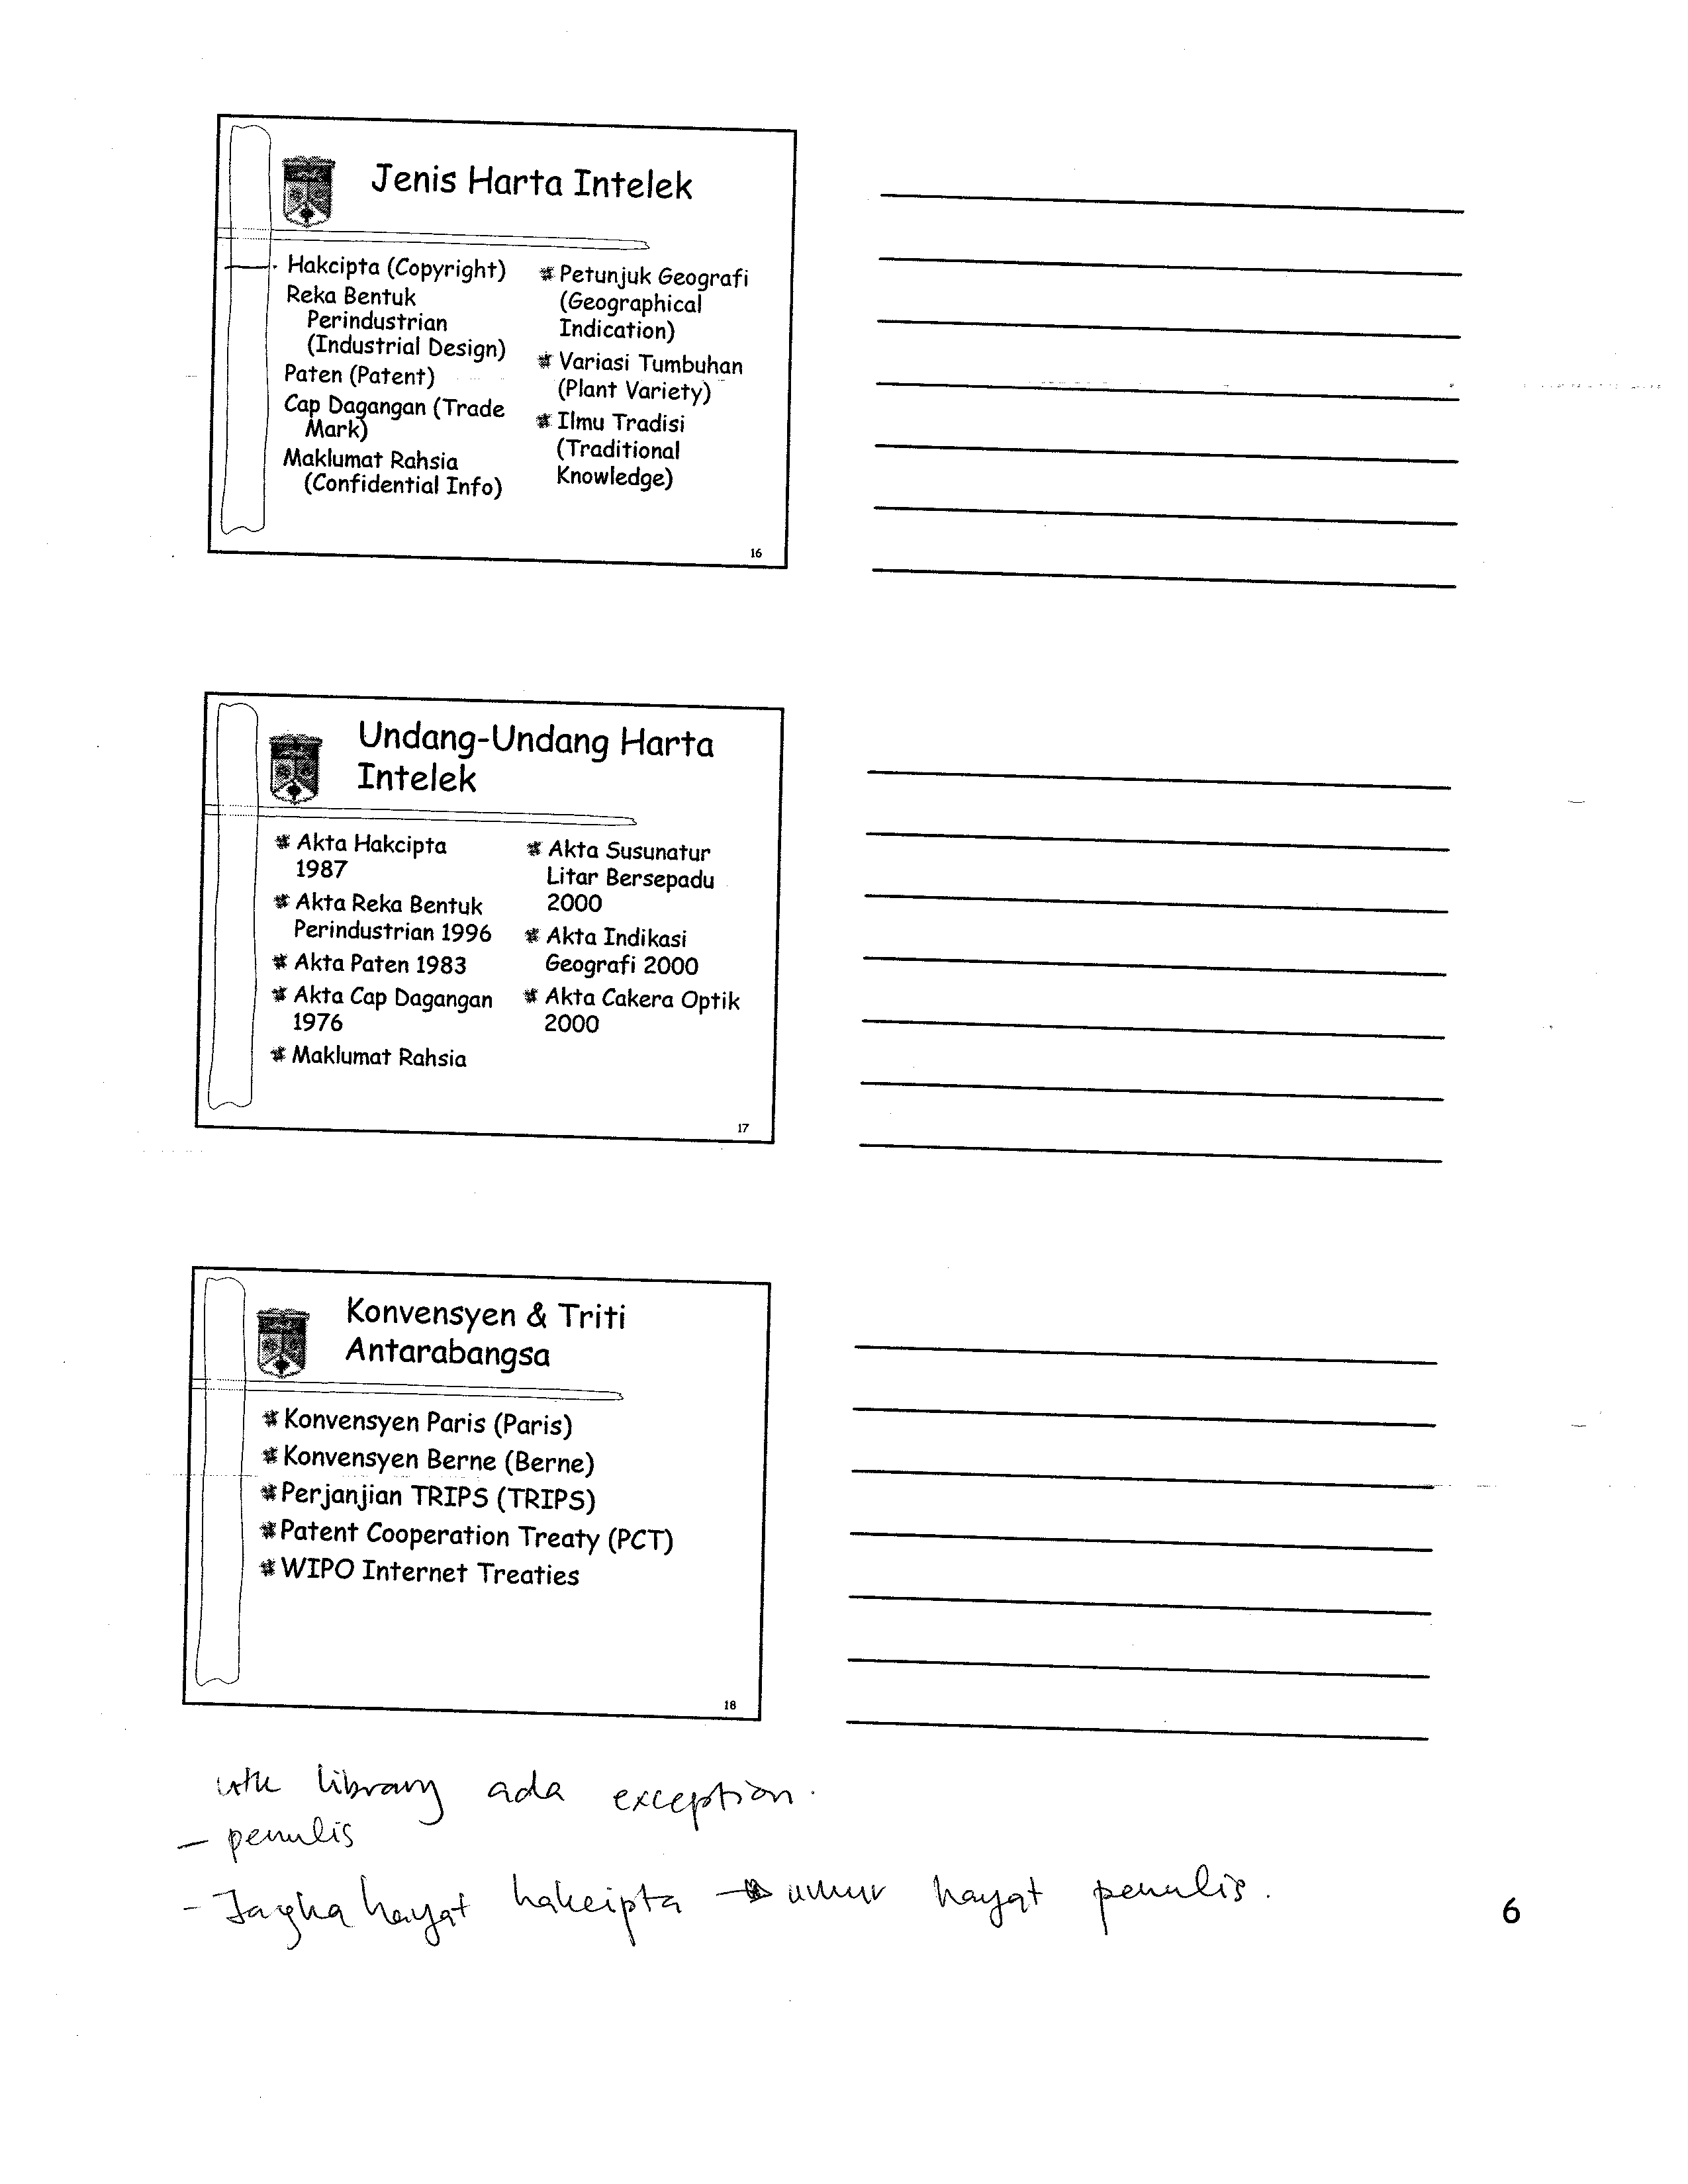 Jenis Harta Intelek
Hakcipta (Copyright)
Reka Bentuk
Perindustrian
(Industrial Design)
Paten (Patent)
Cap Dagangan (Trade
Mark)
Maklumat Rahsia
(Confidential Info)
Petunjuk Geografi
(Geographical
Indication)
Variasi Tumbuhan
(Plant Variety)
Ilmu Tradisi
(Traditional
Knowledge)
16
Undang-Undang Harta
Intelek
Akta Hakcipta
1987
Akta Reka Bentuk
Perindustrian 1996
Akta Paten 1983
Akta Cap Dagangan
1976
Maklumat Rahsia
Akta Susunatur
Litar Bersepadu
2000
Akta Indikasi
Geografi 2000
Akta Cakera Optik
2000
17
Konvensyen & Triti
Antarabangsa
Konvensyen Paris (Paris)
Konvensyen Berne (Berne)
Perjanjian TRIPS (TRIPS)
Patent Cooperation Treaty (PCT)
WIPO Internet Treaties
18
utk library ada exception.
- penulis
- Jagka hayat hakcipta → umur hayat penulis.
6